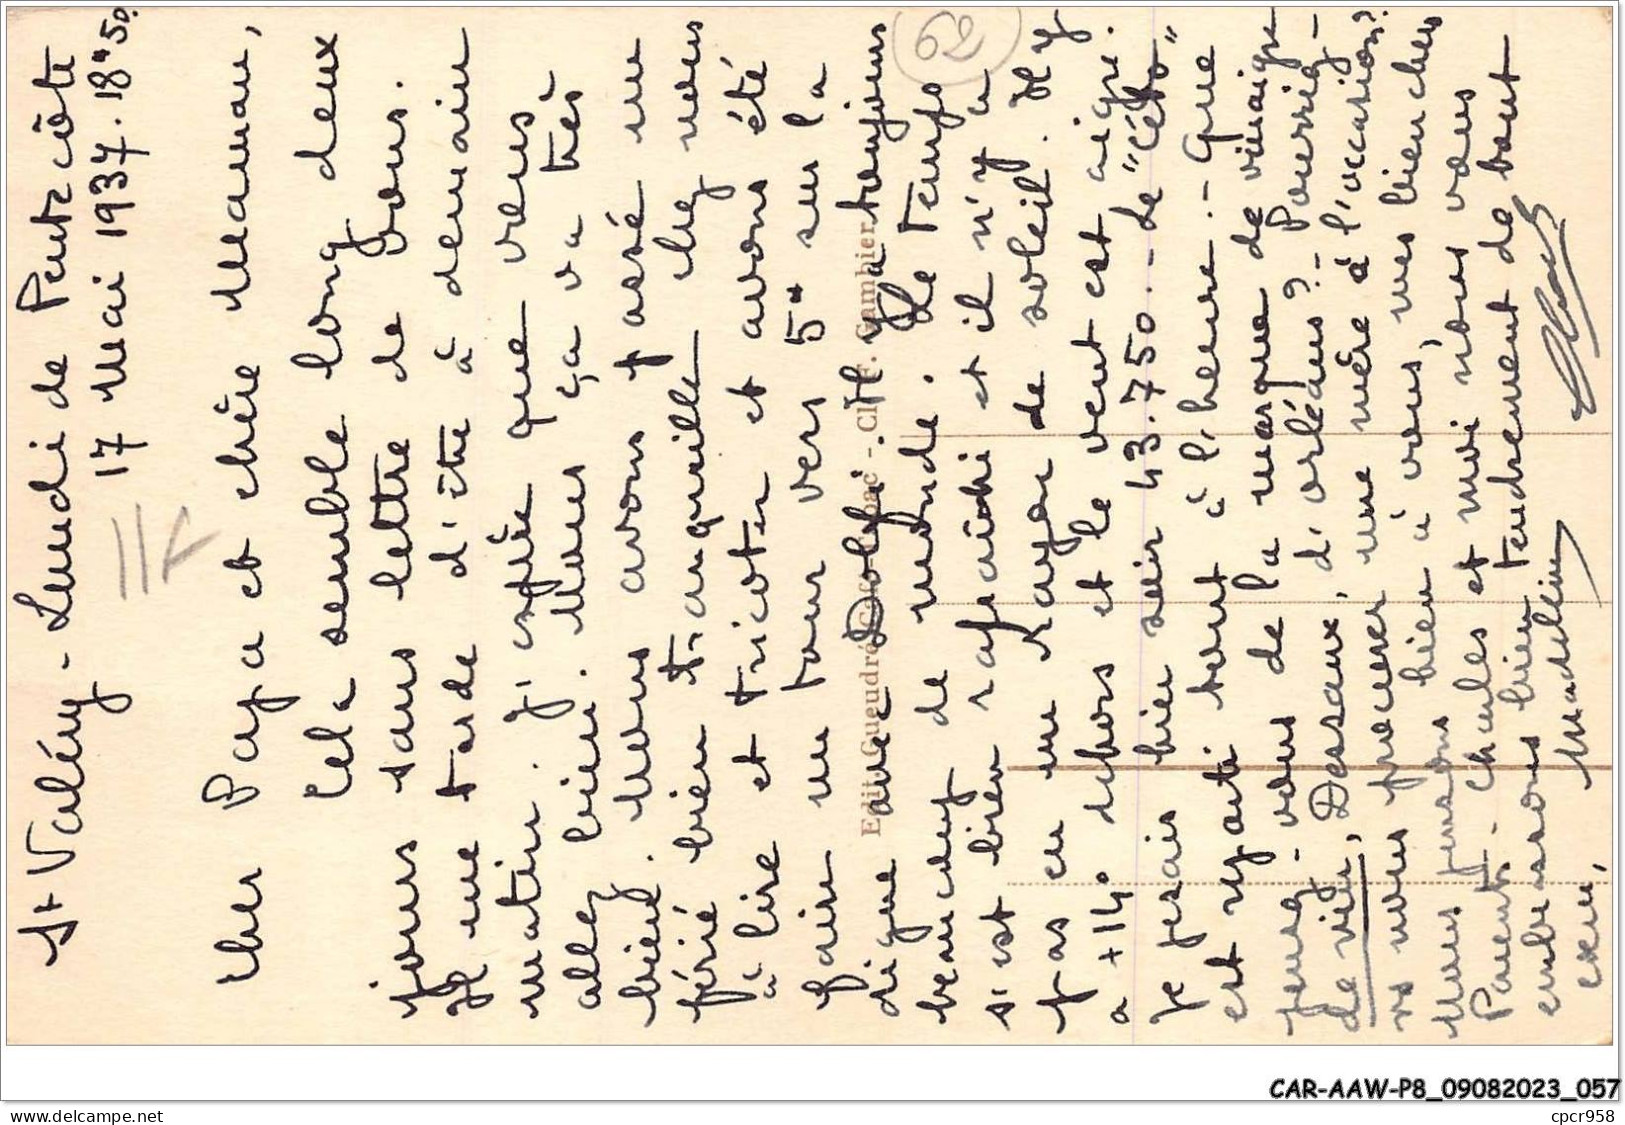 St Valéry - Lundi de Pentecôte
17 Mai 1937. 18h50.
Cher Papa et chère Maman,
Cela semble long deux
jours sans lettre de vous.
Il me tarde d'être à demain
matin. J'espère que vous
allez bien. Nous ça va très
bien. Nous avons passé un
férié bien tranquille chez nous
à lire et tricoter et avons été
faire un tour vers 5h sur la
digue avec Dolfi. Il y a toujours
beaucoup de monde. Le temps
s'est bien rafraîchi et il n'y a
pas eu un rayon de soleil. Il y
a +14° dehors et le vent est aigre.
Je pesais hier soir 43.750. Le "Céto"
est reparti tout à l'heure. - Que
pensez-vous de la marque de vinaigre
de vin, Dessaux, d'Orléans? - Pourriez-
vs nous procurer une mère à l'occasion?
Nous pensons bien à vous, mes bien chers
Parents. Charles et moi nous vous
embrassons bien tendrement de tout
cœur,
Madeleine
Charles
Edit. Gueudré - Clř F. Gambier
62
CAR-AAW-P8_09082023_057
www.delcampe.net
cpcr958